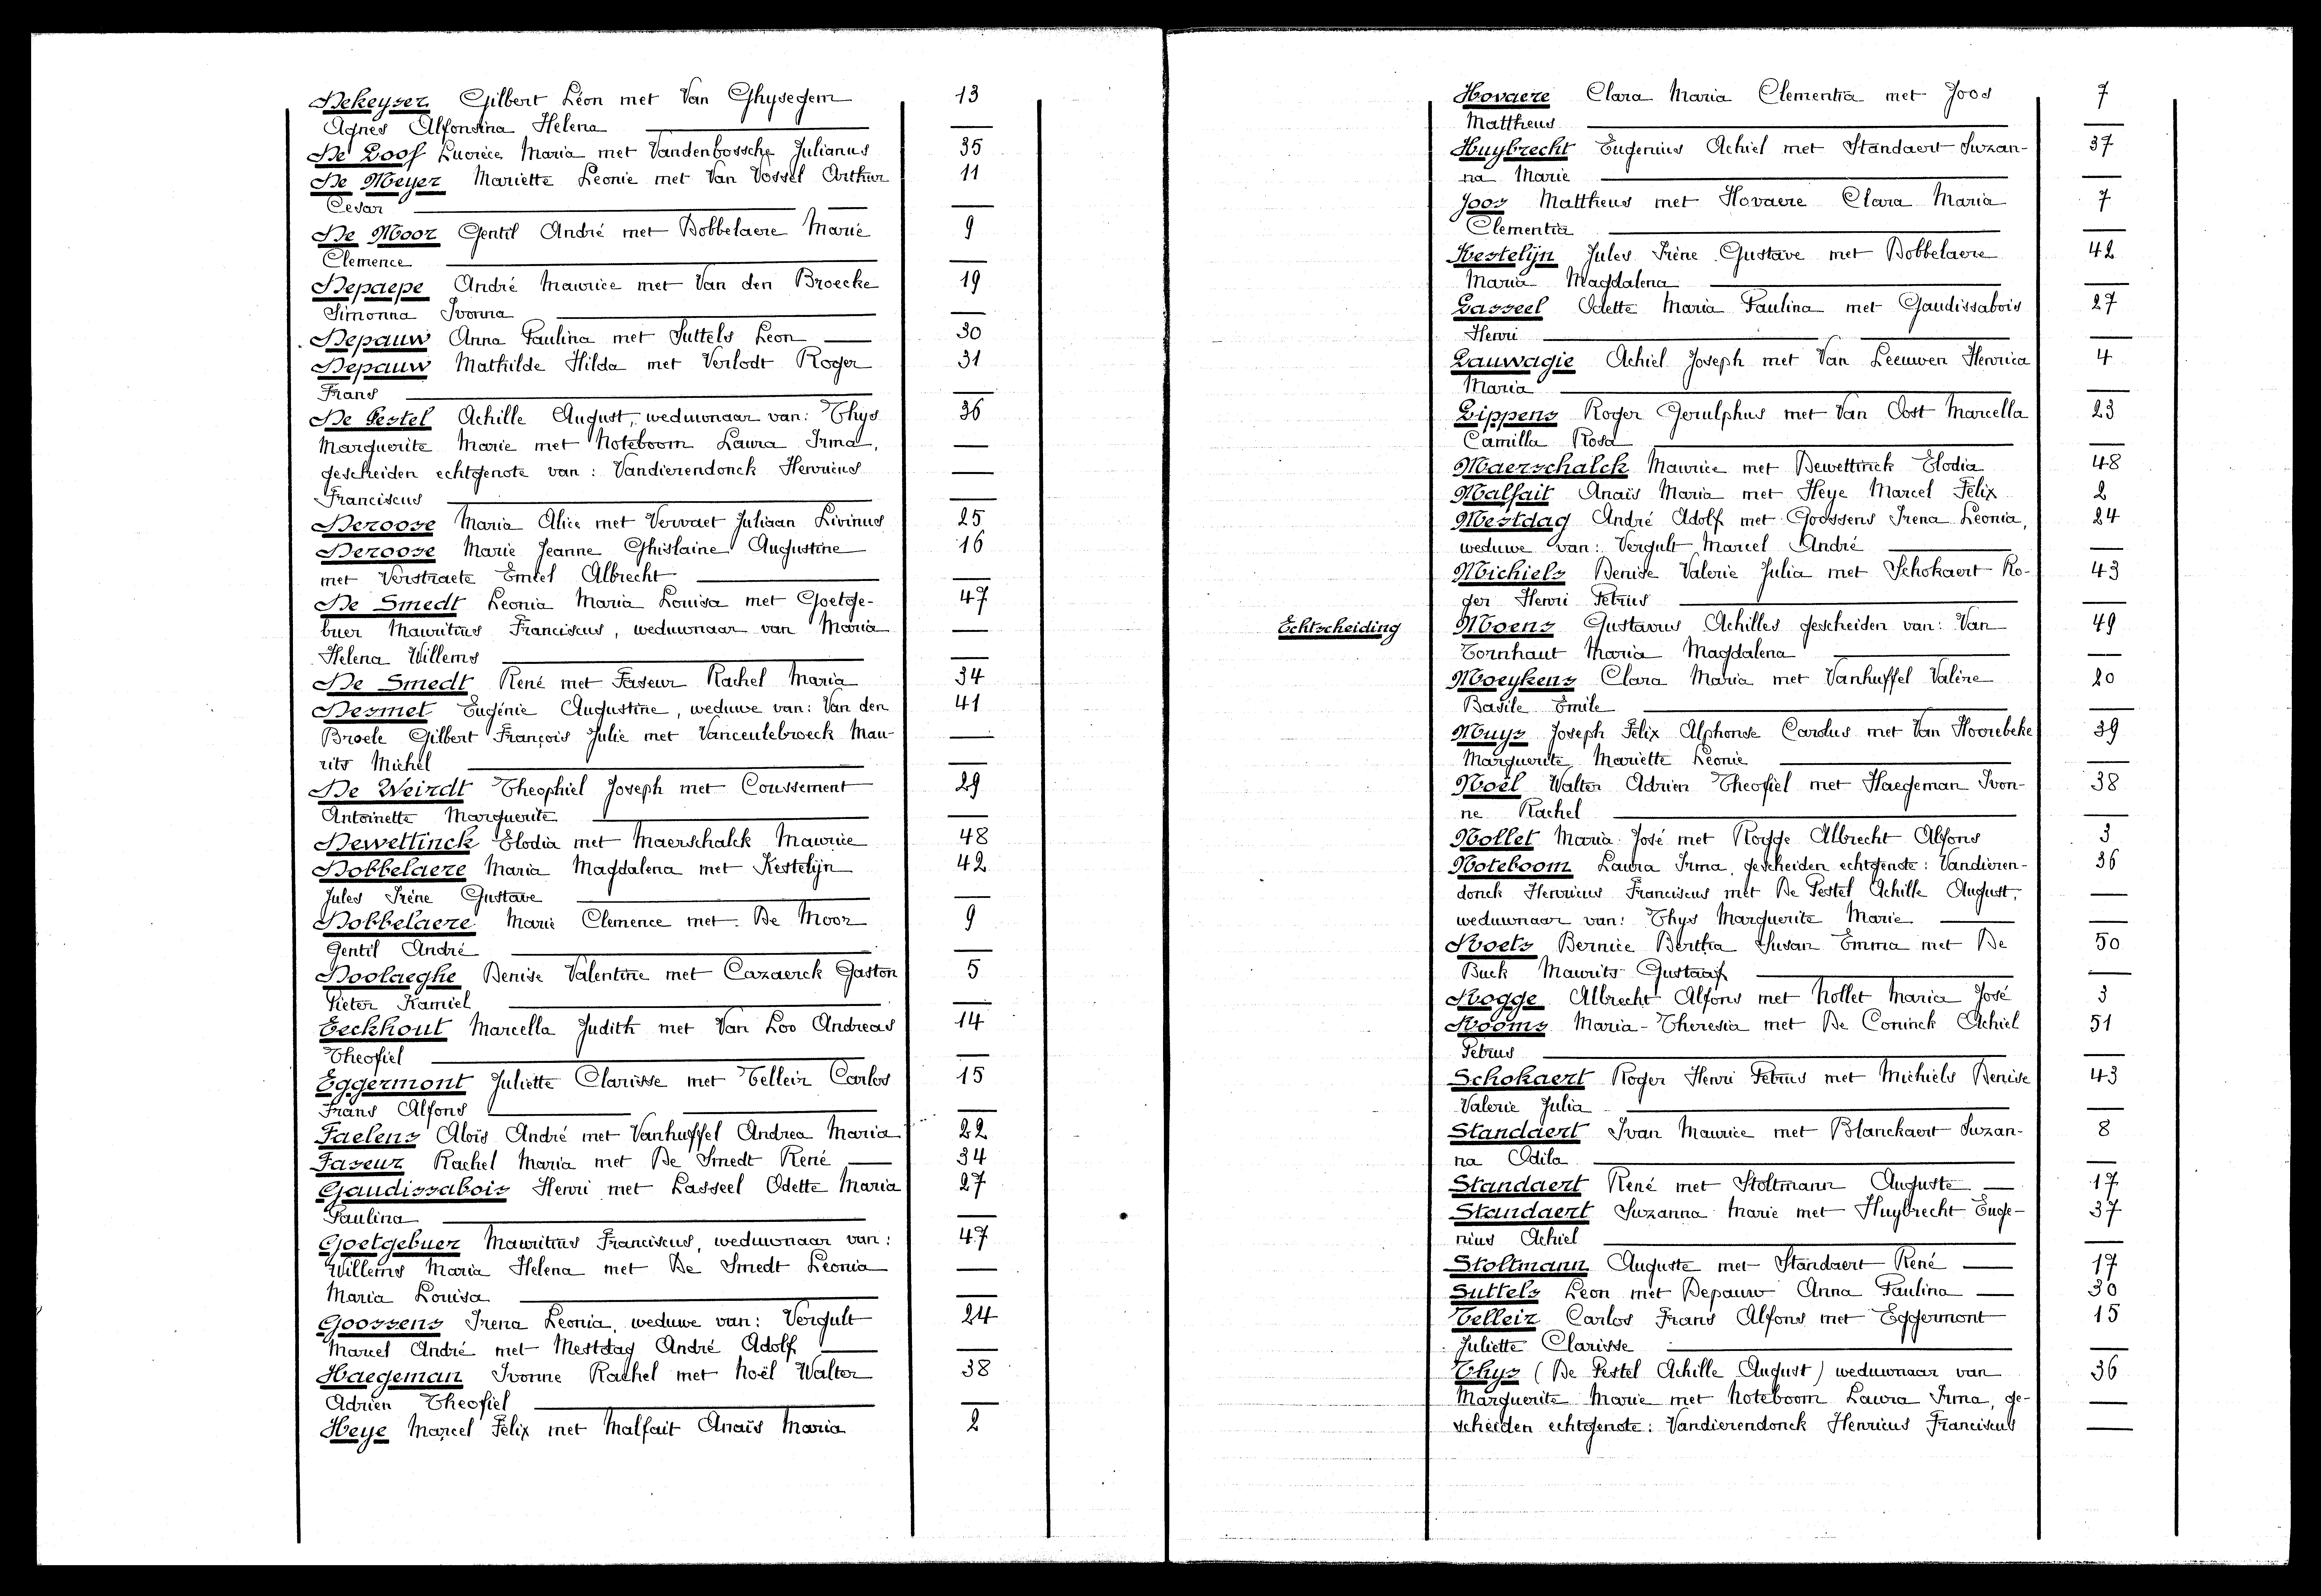 Dekeyser Gilbert Léon met Van Ghysegem 13
Agnes Alfonsina Helena —
De Loof Lucrèce Maria met Vandenbossche Julianus 35
De Meyer Mariette Leonie met Van Vossel Arthur 11
Cesar —
De Moor Gentil André met Dobbelaere Marie 9
Clemence —
Depaepe André Maurice met Van den Broecke 19
Simonna Ivonna —
Depauw Anna Paulina met Suttels Leon — 30
Depauw Mathilde Hilda met Verlodt Roger 31
Frans —
De Pestel Achille August, weduwnaar van: Thys 36
Marguerite Marie met Noteboom Laura Irma, —
gescheiden echtgenote van: Vandierendonck Henricus —
Franciscus —
Deroose Maria Alice met Vervaet Juliaan Livinus 25
Deroose Marie Jeanne Ghislaine Augustine 16
met Verstraete Emiel Albrecht —
De Smedt Leonia Maria Louisa met Goetge- 47
buer Mauritius Franciscus, weduwnaar van Maria —
Helena Willems —
De Smedt René met Faseur Rachel Maria 34
Desmet Eugénie Augustine, weduwe van: Van den 41
Broele Gilbert François Julie met Vanceulebroeck Mau- —
rits Michel —
De Weirdt Theophiel Joseph met Coussement 29
Antoinette Marguerite —
Dewettinck Elodia met Maerschalck Maurice 48
Dobbelaere Maria Magdalena met Kestelijn 42
Jules Irène Gustave —
Dobbelaere Marie Clemence met De Moor 9
Gentil André —
Doolaeghe Denise Valentine met Cazaerck Gaston 5
Pieter Kamiel —
Eeckhout Marcella Judith met Van Loo Andreas 14
Theofiel —
Eggermont Juliette Clarisse met Telleir Carlos 15
Frans Alfons —
Faelens Aloïs André met Vanhuffel Andrea Maria 22
Faseur Rachel Maria met De Smedt René — 34
Gaudissabois Henri met Lasseel Odette Maria 27
Paulina —
Goetgebuer Mauritius Franciscus, weduwnaar van: 47
Willems Maria Helena met De Smedt Leonia —
Maria Louisa —
Goossens Irena Leonia, weduwe van: Vergult 24
Marcel André met Mestdag André Adolf —
Haegeman Ivonne Rachel met Noël Walter 38
Adrien Theofiel —
Heye Marcel Felix met Malfait Anaïs Maria 2
Hovaere Clara Maria Clementia met Joos 7
Mattheus —
Huybrecht Eugenius Achiel met Standaert Suzan- 37
na Marie —
Joos Mattheus met Hovaere Clara Maria 7
Clementia —
Kestelijn Jules Irène Gustave met Dobbelaere 42
Maria Magdalena —
Lasseel Odette Maria Paulina met Gaudissabois 27
Henri —
Lauwagie Achiel Joseph met Van Leeuwen Henrica 4
Maria —
Lippens Roger Gerulphus met Van Oost Marcella 23
Camilla Rosa —
Maerschalck Maurice met Dewettinck Elodia 48
Malfait Anaïs Maria met Heye Marcel Felix 2
Mestdag André Adolf met Goossens Irena Leonia, 24
weduwe van: Vergult Marcel André —
Michiels Denise Valerie Julia met Schokaert Ro- 43
ger Henri Petrus —
Echtscheiding Moens Gustavus Achilles gescheiden van: Van 49
Tornhaut Maria Magdalena —
Moeykens Clara Maria met Vanhuffel Valère 20
Basile Emile —
Muys Joseph Felix Alphonse Carolus met Van Hoorebeke 39
Marguerite Mariette Leonie —
Noël Walter Adrien Theofiel met Haegeman Ivon- 38
ne Rachel —
Nollet Maria José met Rogge Albrecht Alfons 3
Noteboom Laura Irma, gescheiden echtgenote: Vandieren- 36
donck Henricus Franciscus met De Pestel Achille August, —
weduwnaar van: Thys Marguerite Marie —
Roets Bernice Bertha Susan Emma met De 50
Buck Maurits Gustaaf —
Rogge Albrecht Alfons met Nollet Maria José 3
Rooms Maria-Theresia met De Coninck Achiel 51
Petrus —
Schokaert Roger Henri Petrus met Michiels Denise 43
Valerie Julia —
Standaert Ivan Maurice met Blanckaert Suzan- 8
na Odila —
Standaert René met Stoltmann Auguste — 17
Standaert Suzanna Marie met Huybrecht Euge- 37
nius Achiel —
Stoltmann Auguste met Standaert René — 17
Suttels Leon met Depauw Anna Paulina — 30
Telleir Carlos Frans Alfons met Eggermont 15
Juliette Clarisse —
Thys (De Pestel Achille August) weduwnaar van 36
Marguerite Marie met Noteboom Laura Irma, ge- —
scheiden echtgenote: Vandierendonck Henricus Franciscus —